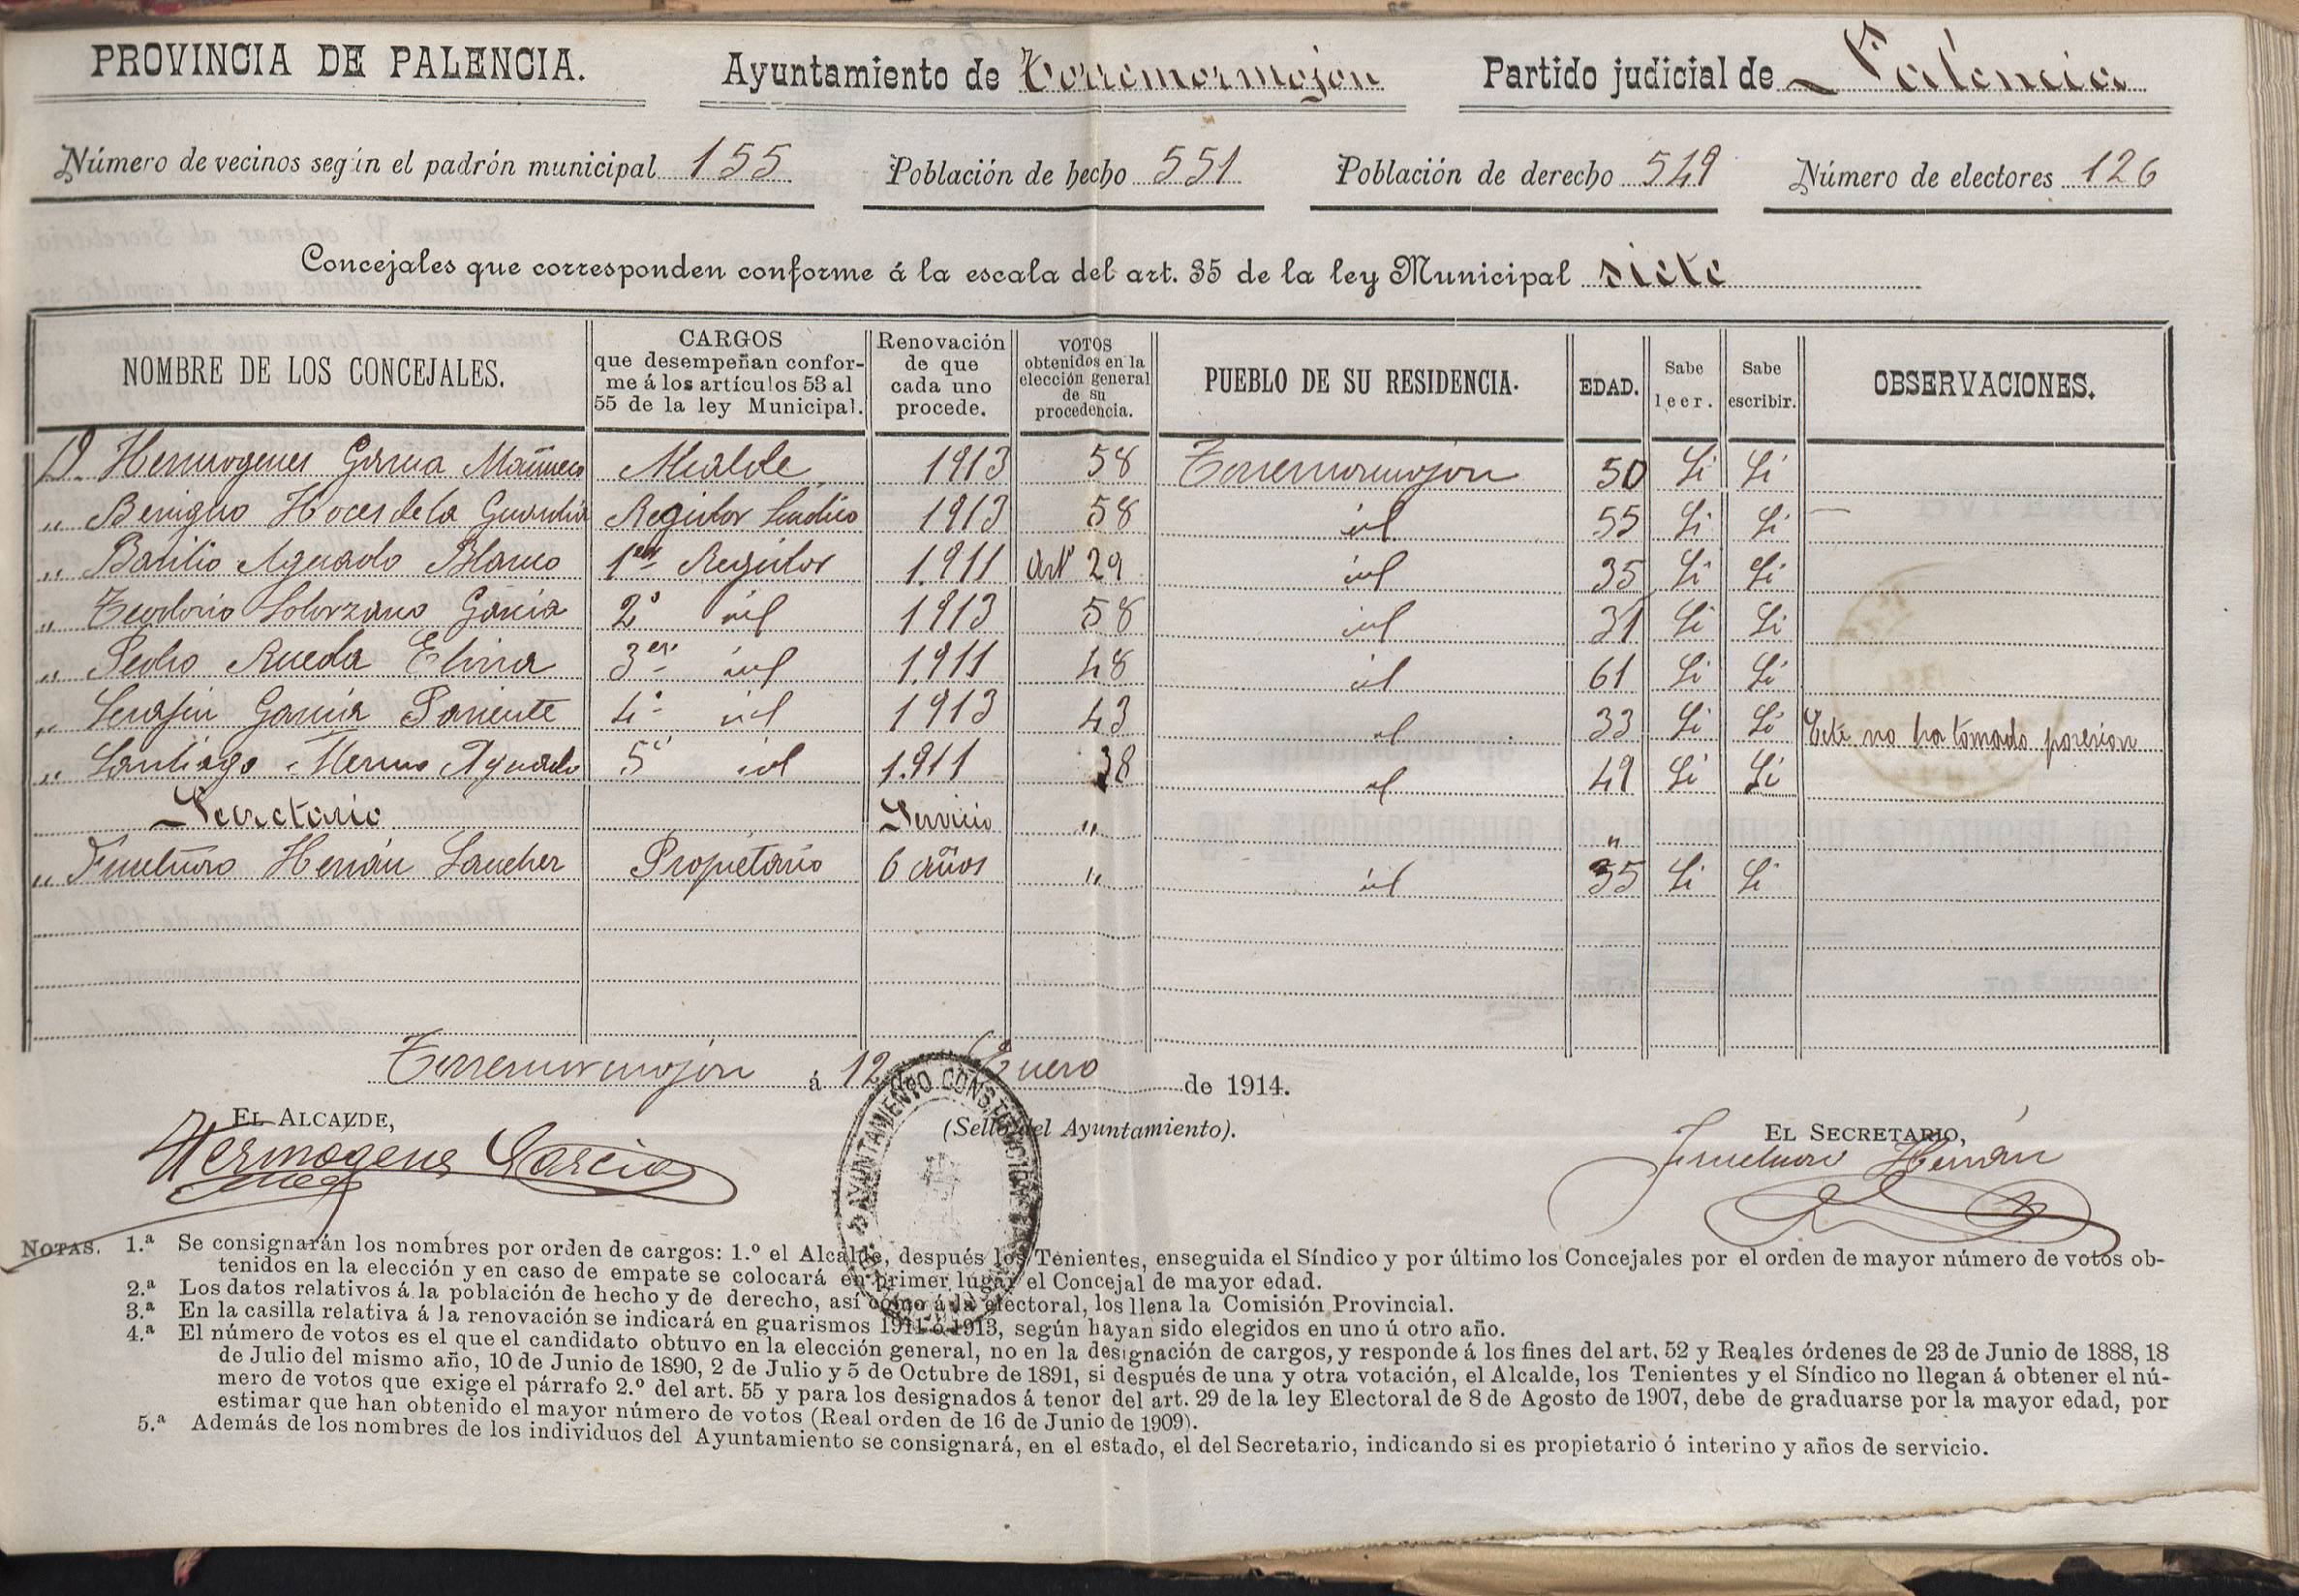 PROVINCIA DE PALENCIA. Ayuntamiento de Torremormojon Partido judicial de Palencia
Número de vecinos según el padrón municipal 155 Población de hecho 551 Población de derecho 549 Número de electores 126
Concejales que corresponden conforme á la escala del art. 35 de la ley Municipal siete
NOMBRE DE LOS CONCEJALES. CARGOS que desempeñan conforme á los artículos 53 al 55 de la ley Municipal. Renovación de que cada uno procede. VOTOS obtenidos en la elección general de su procedencia. PUEBLO DE SU RESIDENCIA. EDAD. Sabe leer. Sabe escribir. OBSERVACIONES.
D. Hermogenes Garcia Alcalde 1913 58 Torremormojon 50 Si Si
„ Benigno Hoces de la Guardia Regidor Sindico 1913 58 id 55 Si Si
„ Basilio Aguado Blanco 1er Regidor 1.911 Artº 29 id 35 Si Si
„ Teodorio Solorzano Garcia 2º id 1913 58 id 31 Si Si
„ Pedro Rueda 3er id 1.911 48 id 61 Si Si
„ Serafin Garcia Pariente 4º id 1913 43 id 33 Si Si Este no ha tomado posesion
„ Santiago Merino Aguado 5º id 1.911 38 id 49 Si Si
Secretario Servicio „ „
„ Fructuoso Hernán Sanchez Propietario 6 años „ id 35 Si Si
Torremormojon á 12 Enero de 1914.
EL ALCALDE, (Sello del Ayuntamiento). EL SECRETARIO,
Hermogenes Garcia Fructuoso Hernán
AYUNTAMIENTO CONSTITUCIONAL
NOTAS. 1.ª Se consignarán los nombres por orden de cargos: 1.º el Alcalde, después los Tenientes, enseguida el Síndico y por último los Concejales por el orden de mayor número de votos ob-
tenidos en la elección y en caso de empate se colocará en primer lugar el Concejal de mayor edad.
2.ª Los datos relativos á la población de hecho y de derecho, así como á la electoral, los llena la Comisión Provincial.
3.ª En la casilla relativa á la renovación se indicará en guarismos 1911 ó 1913, según hayan sido elegidos en uno ú otro año.
4.ª El número de votos es el que el candidato obtuvo en la elección general, no en la designación de cargos, y responde á los fines del art. 52 y Reales órdenes de 23 de Junio de 1888, 18
de Julio del mismo año, 10 de Junio de 1890, 2 de Julio y 5 de Octubre de 1891, si después de una y otra votación, el Alcalde, los Tenientes y el Síndico no llegan á obtener el nú-
mero de votos que exige el párrafo 2.º del art. 55 y para los designados á tenor del art. 29 de la ley Electoral de 8 de Agosto de 1907, debe de graduarse por la mayor edad, por
estimar que han obtenido el mayor número de votos (Real orden de 16 de Junio de 1909).
5.ª Además de los nombres de los individuos del Ayuntamiento se consignará, en el estado, el del Secretario, indicando si es propietario ó interino y años de servicio.